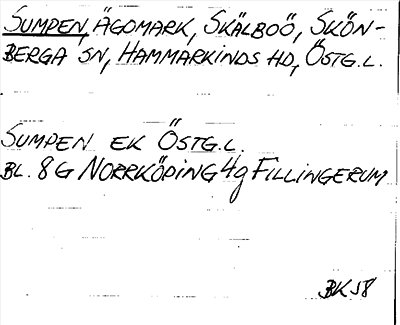 SUMPEN, ÄGOMARK, SKÄLBOÖ, SKÖN-
BERGA SN, HAMMARKINDS HD, ÖSTG.L.
SUMPEN EK ÖSTG.L.
BL. 8G NORRKÖPING 4g FILLINGERUM
BK58